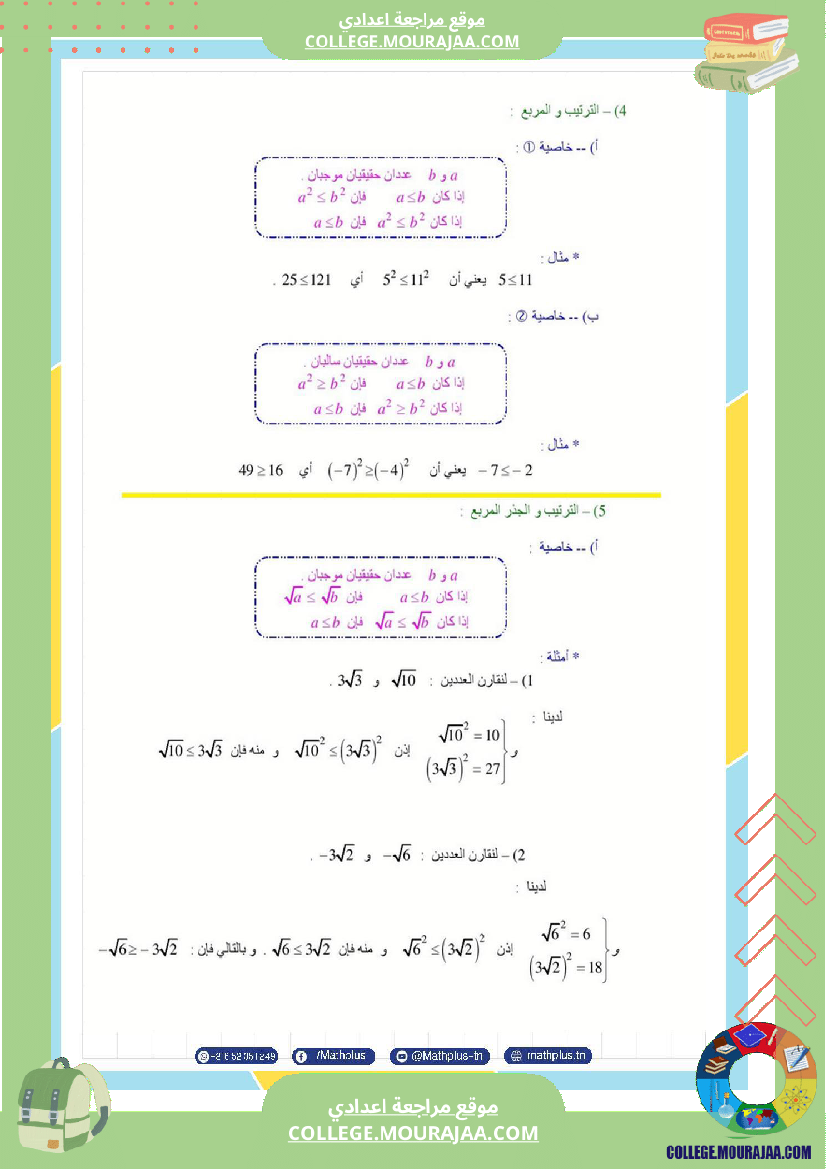 موقع مراجعة اعدادي
COLLEGE.MOURAJAA.COM
4) – الترتيب و المربع :
أ) -- خاصية ① :
a و b عددان حقيقيان موجبان .
إذا كان a ≤ b فإن a² ≤ b²
إذا كان a² ≤ b² فإن a ≤ b
* مثال :
5 ≤ 11 يعني أن 5² ≤ 11² أي 25 ≤ 121 .
ب) -- خاصية ② :
a و b عددان حقيقيان سالبان .
إذا كان a ≤ b فإن a² ≥ b²
إذا كان a² ≥ b² فإن a ≤ b
* مثال :
– 7 ≤ – 2 يعني أن (–7)² ≥ (–4)² أي 49 ≥ 16
5) – الترتيب و الجذر المربع :
أ) -- خاصية :
a و b عددان حقيقيان موجبان .
إذا كان a ≤ b فإن √a ≤ √b
إذا كان √a ≤ √b فإن a ≤ b
* أمثلة :
1) – لنقارن العددين : √10 و 3√3 .
لدينا :
√10² = 10
و (3√3)² = 27 إذن √10² ≤ (3√3)² و منه فإن √10 ≤ 3√3
2) – لنقارن العددين : –√6 و –3√2 .
لدينا :
√6² = 6
و (3√2)² = 18 إذن √6² ≤ (3√2)² و منه فإن √6 ≤ 3√2 . و بالتالي فإن : –√6 ≥ –3√2
/Mathplus
@Mathplus-tn
mathplus.tn
موقع مراجعة اعدادي
COLLEGE.MOURAJAA.COM
COLLEGE.MOURAJAA.COM